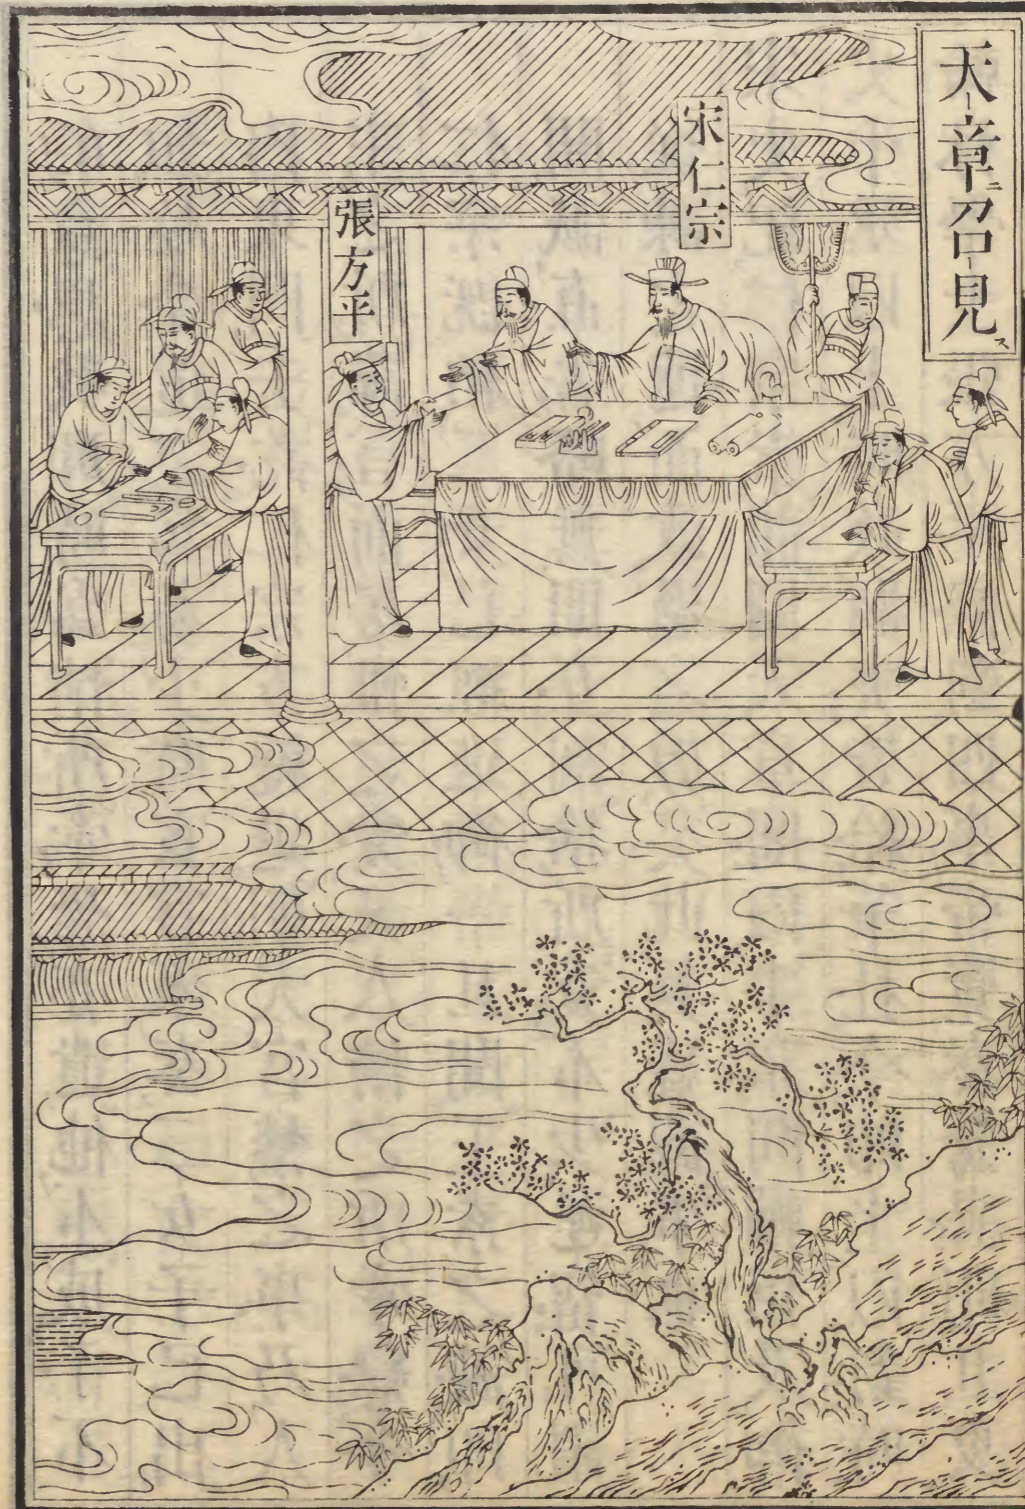 天章ニ召見ス
宋仁宗
張方平